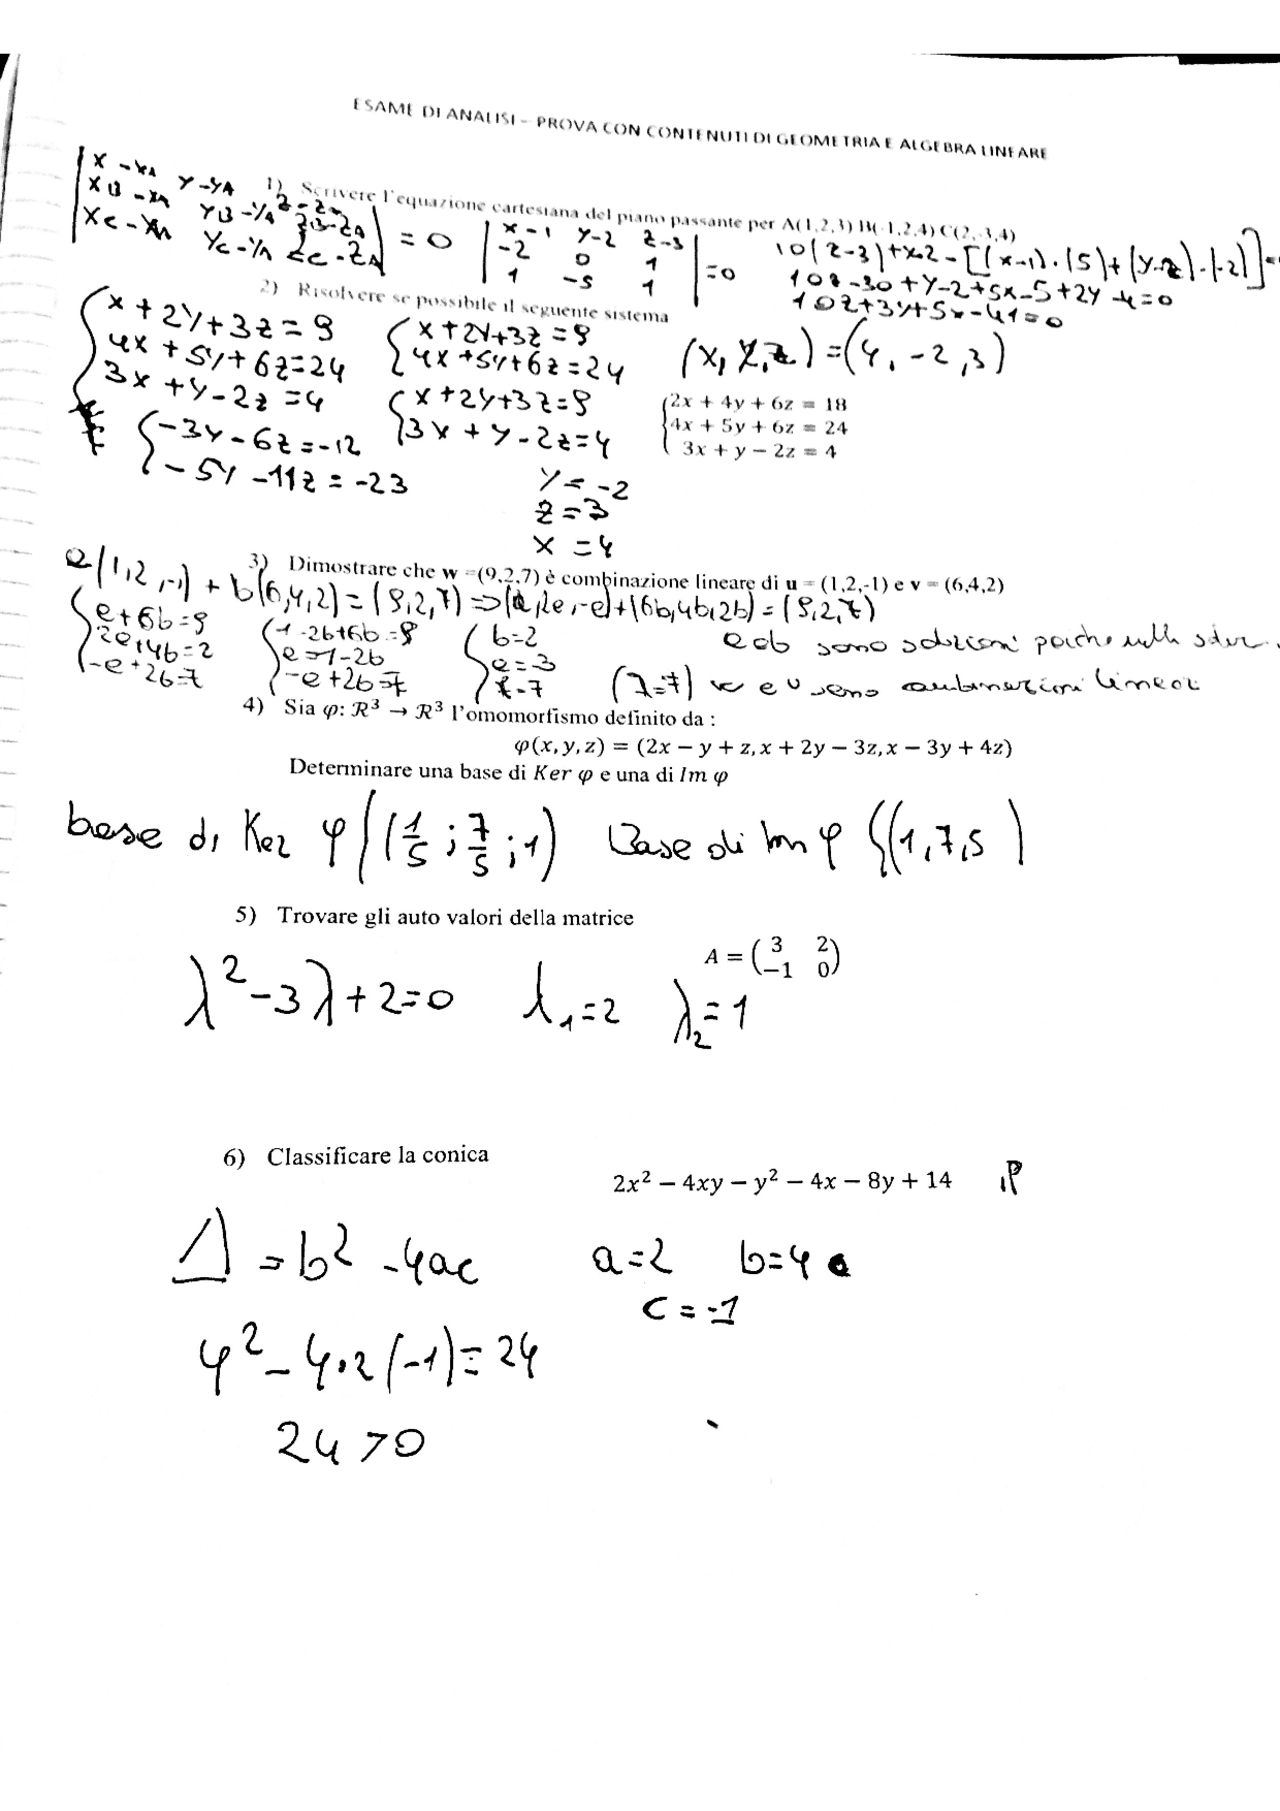 ESAME DI ANALISI – PROVA CON CONTENUTI DI GEOMETRIA E ALGEBRA LINEARE
1) Scrivere l'equazione cartesiana del piano passante per A(1,2,3) B(-1,2,4) C(2,-3,4)
| x - xA y - yA z - zA |
| xB - xA yB - yA zB - zA | = 0
| xC - xA yC - yA zC - zA |
| x-1 y-2 z-3 |
| -2 0 1 | = 0
| 1 -5 1 |
10z-30+y-2+5x-5+2y-4=0
10z+3y+5x-41=0
2) Risolvere se possibile il seguente sistema
x+2y+3z=9
4x+5y+6z=24
3x+y-2z=4
x+2y+3z=9
4x+5y+6z=24
(x,y,z)=(4,-2,3)
x+2y+3z=9
3x+y-2z=4
2x + 4y + 6z = 18
4x + 5y + 6z = 24
3x + y − 2z = 4
-3y-6z=-12
-5y-11z=-23
y=-2
z=3
x=4
3) Dimostrare che w =(9,2,7) è combinazione lineare di u = (1,2,-1) e v = (6,4,2)
a(1,2,-1)+b(6,4,2)=(9,2,7)=>(a,2a,-a)+(6b,4b,2b)=(9,2,7)
a+6b=9
2a+4b=2
-a+2b=7
1-2b+6b=9
a=1-2b
-a+2b=7
b=2
a=-3
7=7
a e b sono soluzioni poiche
(7=7) w e v sono combinazioni lineari
4) Sia φ: R³ → R³ l'omomorfismo definito da :
φ(x, y, z) = (2x − y + z, x + 2y − 3z, x − 3y + 4z)
Determinare una base di Ker φ e una di Im φ
base di Ker φ ((1/5 ; 7/5 ; 1) Base di Im φ {(1,7,5)
5) Trovare gli auto valori della matrice
A = ( 3 2
−1 0 )
λ²-3λ+2=0 λ₁=2 λ₂=1
6) Classificare la conica
2x² − 4xy − y² − 4x − 8y + 14 iP
Δ = b²-4ac a=2 b=4
c=-1
4²-4·2(-1)=24
24>0